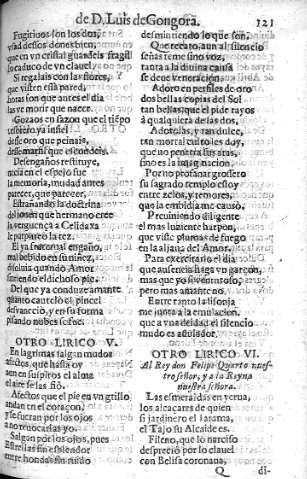 de D. Luis de Gongora.
121
Fugitiuos son los dos,
vsad dessos dones bien,
que en vn cristal guardeis fragil
lo caduco de vn clauel.
Si regalais con las flores,
que visten esta pared,
horas son que antes el dia
las ve morir que nacer.
Gozaos en sazon que el tiẽpo
tesorero ya infiel
desse oro que peinais,
Desengaños restituye,
en el espejo fue
la memoria, mudad antes
parecer, que parecer.
Estrañando la doctrina
del jouen que hermano cree
la verguença a Celidaxa
El ya fraternal engaño,
mal bebido en su niñez,
quando Amor
Del que ya conduce amante
quanto cauteló el pincel
desvaneció, y en su forma
OTRO LIRICO V.
En lagrimas salgan mudos
afectos, que hasta oy
aun en suspiros el alma
el aire se las fió.
Afectos que el pie en vn grillo
andan en el coraçon,
y se fueran por los ojos
a no reuocarlas yo.
Salgan por los ojos, pues
entre hondas sin ruido
desmintiendo lo que son.
Que recato, aun al silencio
señas teme sino voz,
tanta a la diuina causa
se deue veneracion.
Adoro en perfiles de oro
dos bellas copias del Sol
tan bellas, que el pide rayos
á qualquiera de las dos.
Adorolas, y tan dulce,
tan mortal culto les doy,
que no penetra sus aras,
sino es la imaginacion.
Por no profanar grossero
su sagrado templo estoy
entre zelos, y temores,
que la embidia me causó,
Preuiniendo diligente
el mas luziente harpon,
que viste plumas de fuego
en la aljaua del Amor.
Para executarlo el dia
que ausencia haga vn garçon,
mas que yo venturoso,
pero mas amante no.
Entre tanto la lisonja
me junta a la emulacion,
que a vna deidad el silencio
mudo es adulador.
OTRO LIRICO VI.
Al Rey don Felipe Quarto nues-
tro señor, y a la Reyna
nuestra señora.
Las esmeraldas en yerua,
los alcaçares de quien
si jardinero el Jarama,
el Tajo su Alcaide es.
Fileno, que lo narciso
despreció por lo clauel
con Belisa coronaua,
Q
di-